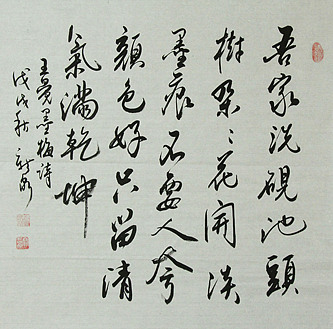 吾家洗硯池頭
樹朶〻花開淡
墨痕不要人夸
顔色好只留清
氣滿乾坤
王冕墨梅詩
戊戌秋